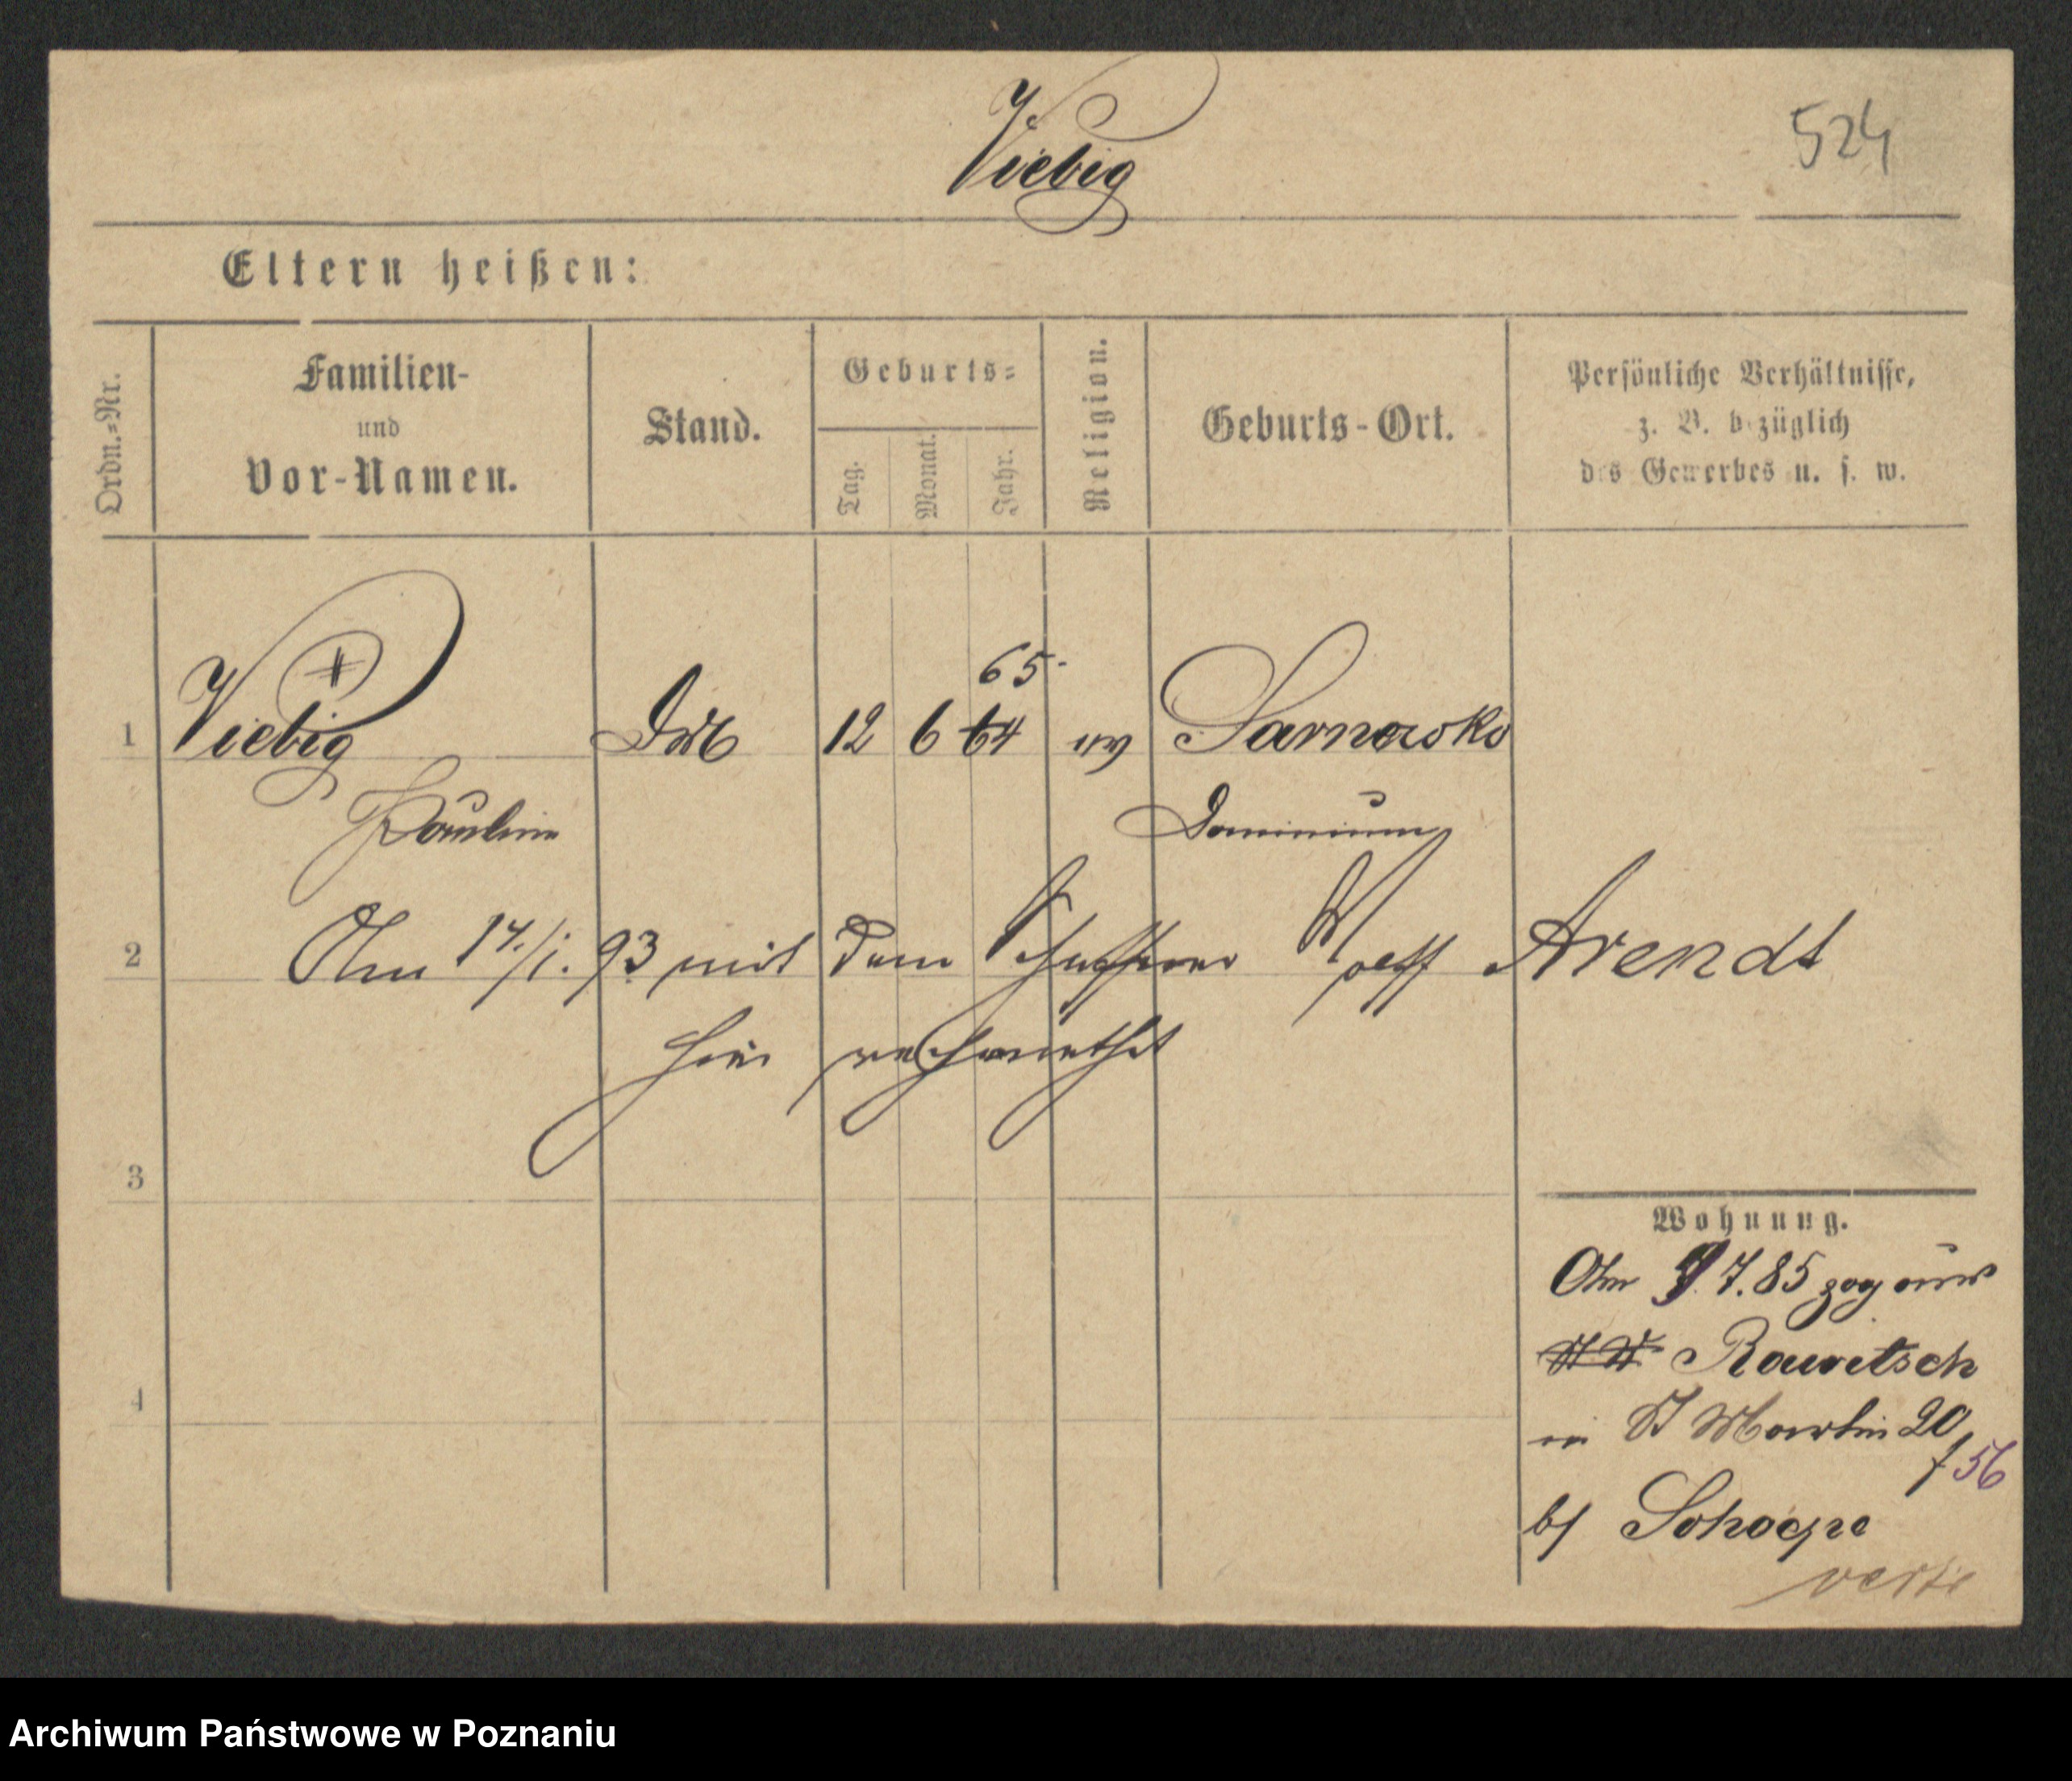 Viebig
524
Eltern heißen:
Ordn.=Nr.
Familien-
und
Vor-Namen.
Stand.
Geburts=
Tag.
Monat.
Jahr.
Religion.
Geburts-Ort.
Persönliche Verhältnisse,
z. B. bezüglich
des Gewerbes u. s. w.
65
1 Viebig 12 6 64 ev Sarnowko
Pauline Dominium
2 Am 14./1. 93 mit dem Arendt
hier verheirathet
3
4
Wohnung.
Am 9 7. 85 zog aus
Rawitsch
in St Martin 20
/56
b/ Schoepe
verte
Archiwum Państwowe w Poznaniu